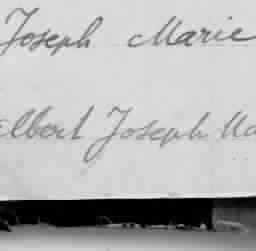 Joseph Marie
Albert Joseph Ma